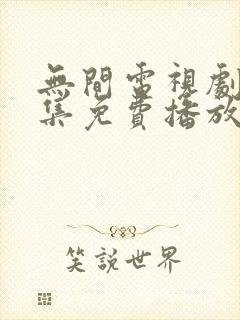 無間電視劇
集免費播放
笑說世界